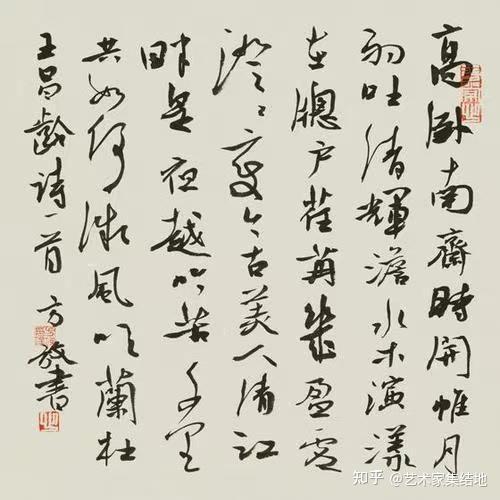 高卧南齋時開帷月
初吐清輝澹水木演漾
在牕户荏苒幾盈虚
澄々變今古美人清江
畔是夜越吟苦千里
共如何微風吹蘭杜
王昌齡詩一首 方放書
知乎 @艺术家集结地